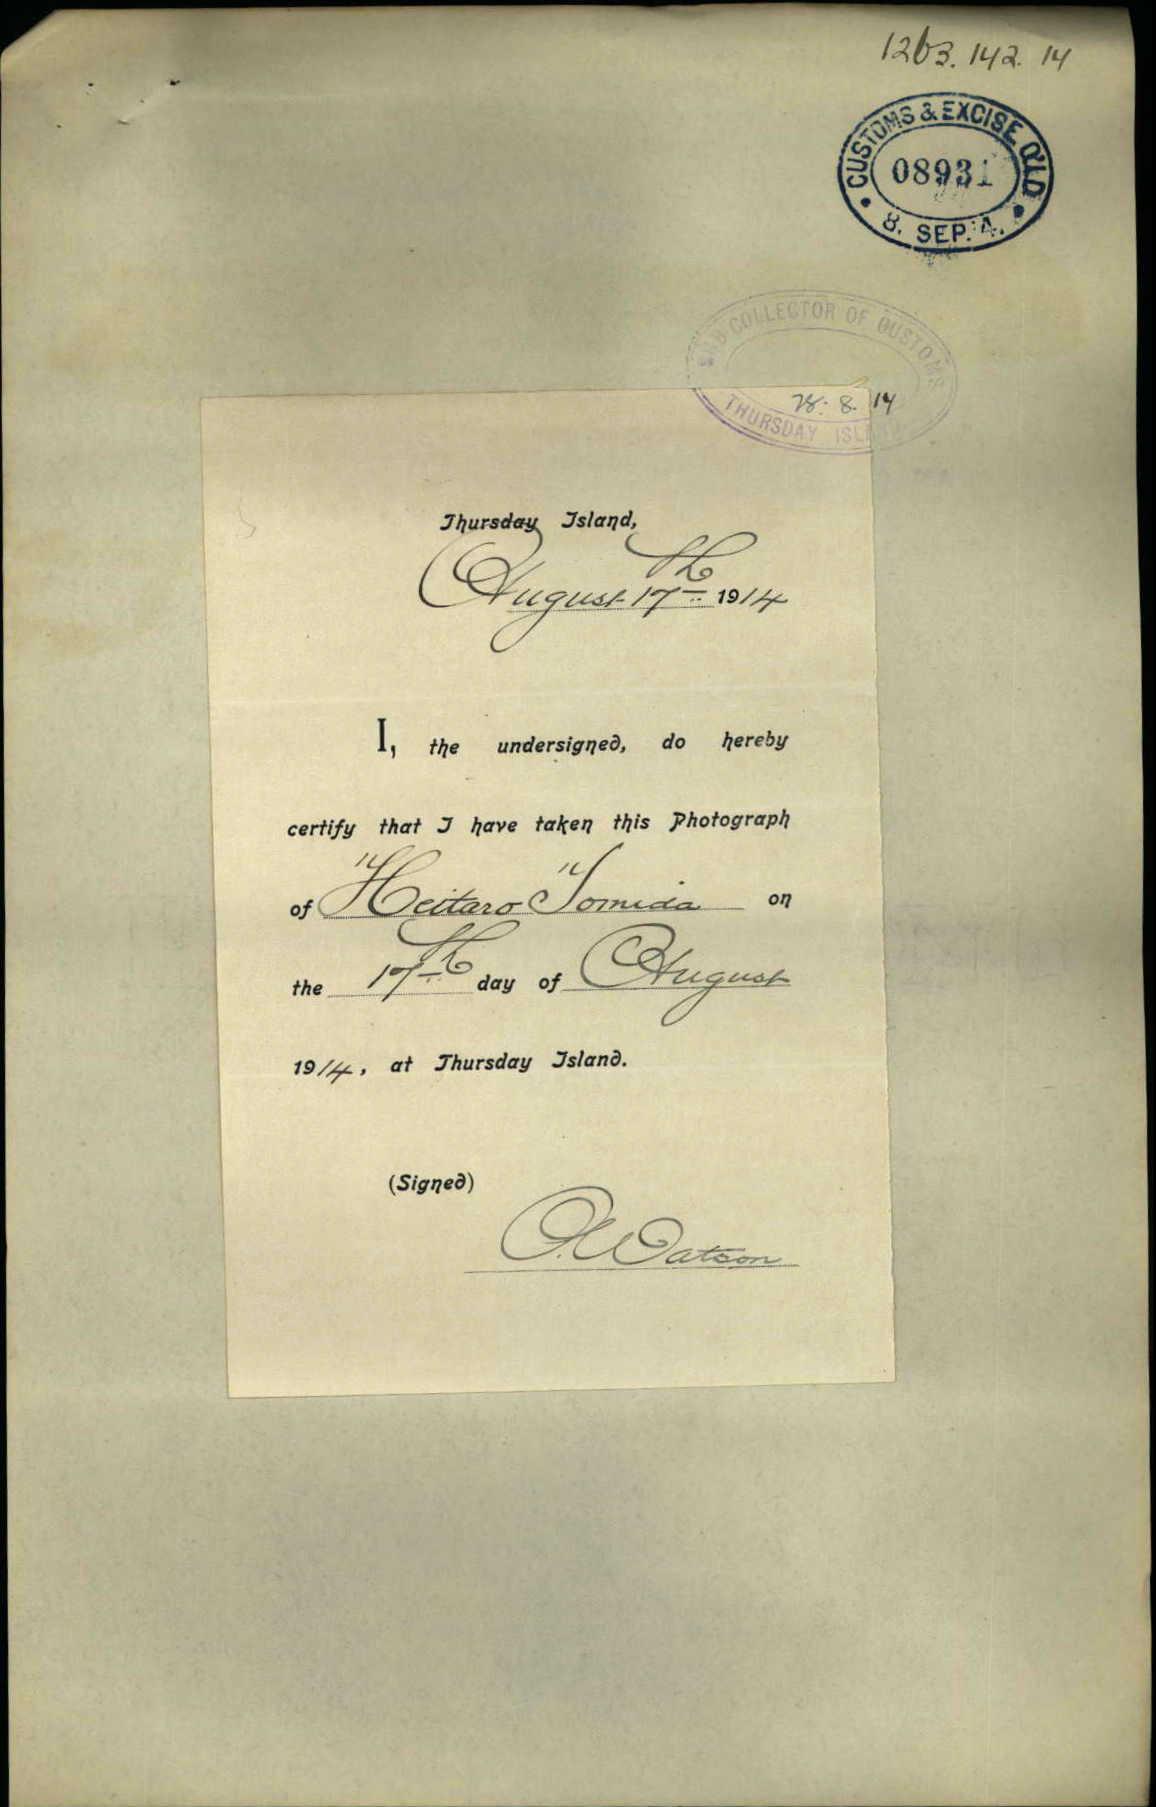 1263. 142. 14
CUSTOMS & EXCISE Q'LD
08931
8. SEP. 14.
SUB COLLECTOR OF CUSTOMS
28. 8. 14
THURSDAY ISLAND
Thursday Island,
August 17th 1914
I, the undersigned, do hereby
certify that I have taken this Photograph
of Heitaro Tomida on
the 17th day of August
1914, at Thursday Island.
(Signed)
O. Watson